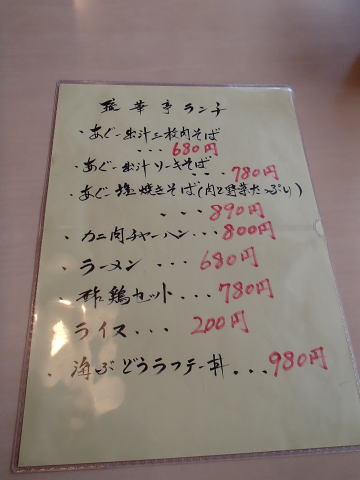 華亭ランチ
・あぐー出汁三枚肉そば
・・・680円
・あぐー出汁ソーキそば
・・・780円
・あぐー塩焼きそば(肉と野菜たっぷり)
・・・890円
・カニ肉チャーハン・・・800円
・ラーメン・・・680円
・酢鶏セット・・・780円
・ライス・・・200円
・海ぶどうラフテー丼・・・980円